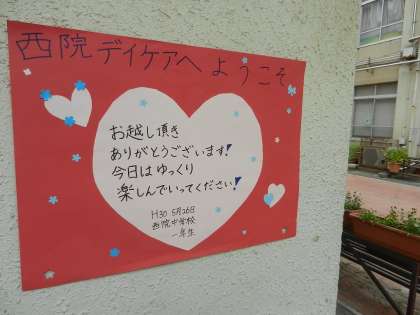 西院デイケアへようこそ
お越し頂き
ありがとうございます!
今日はゆっくり
楽しんでいってください!
H30 5月26日
西院中学校
一年生